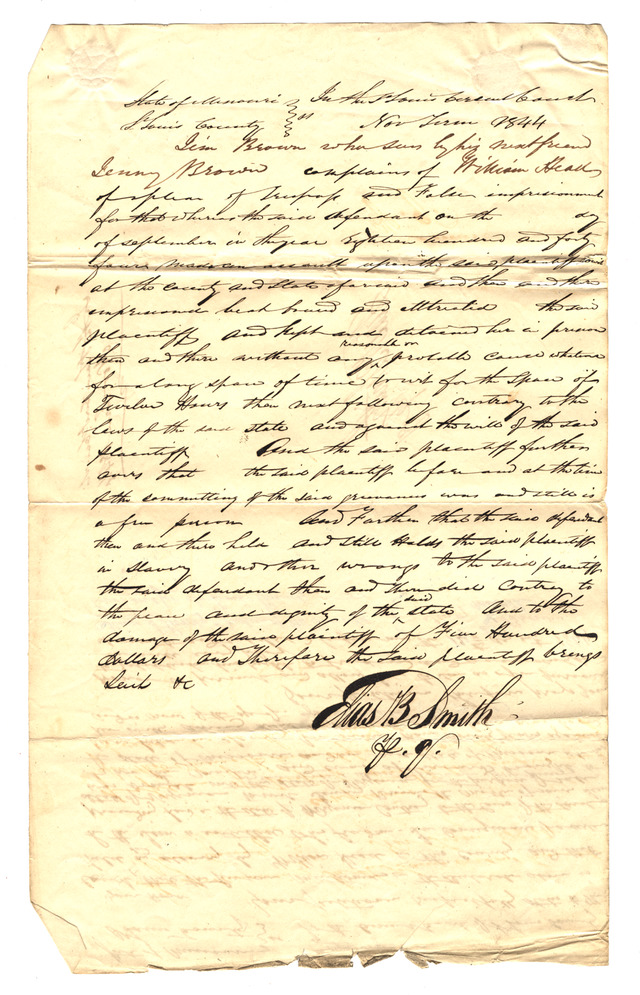 State of Missouri } ss In the St Louis Circuit Court
St Louis County } Nov Term 1844
Jim Brown who sues by his next friend
Jenny Brown complains of William Head
of a plea of trespass and False imprisionment
for that whereas the said defendant on the day
of september in the year Eighteen hundred and forty
foure made an assault upon the said plaintiff
at the county and State aforesaid and then and there
imprisoned beat bound and illtreated the said
plaintiff and kept and detained her in prison
then and there without any reasonable or probable cause whatever
for a long space of time towit for the Space of
Twelve Hours then next following contrary to the
laws of the said state and against the will of the said
plaintiff And the said plaintiff further
avers that the said plaintiff before and at the time
of the committing of the said grievances was and still is
a free person And Farther that the said defendant
then and there held and still Holds the said plaintiff
in Slavery and other wrongs to the said plaintiff
the said defendant then and there did Contrary to
the peace and dignity of the said state And to the
damage of the said plaintiff of Five Hundred
dollars and Therefore the said plaintiff brings
Suit &c
Elias B Smith
P. Q.